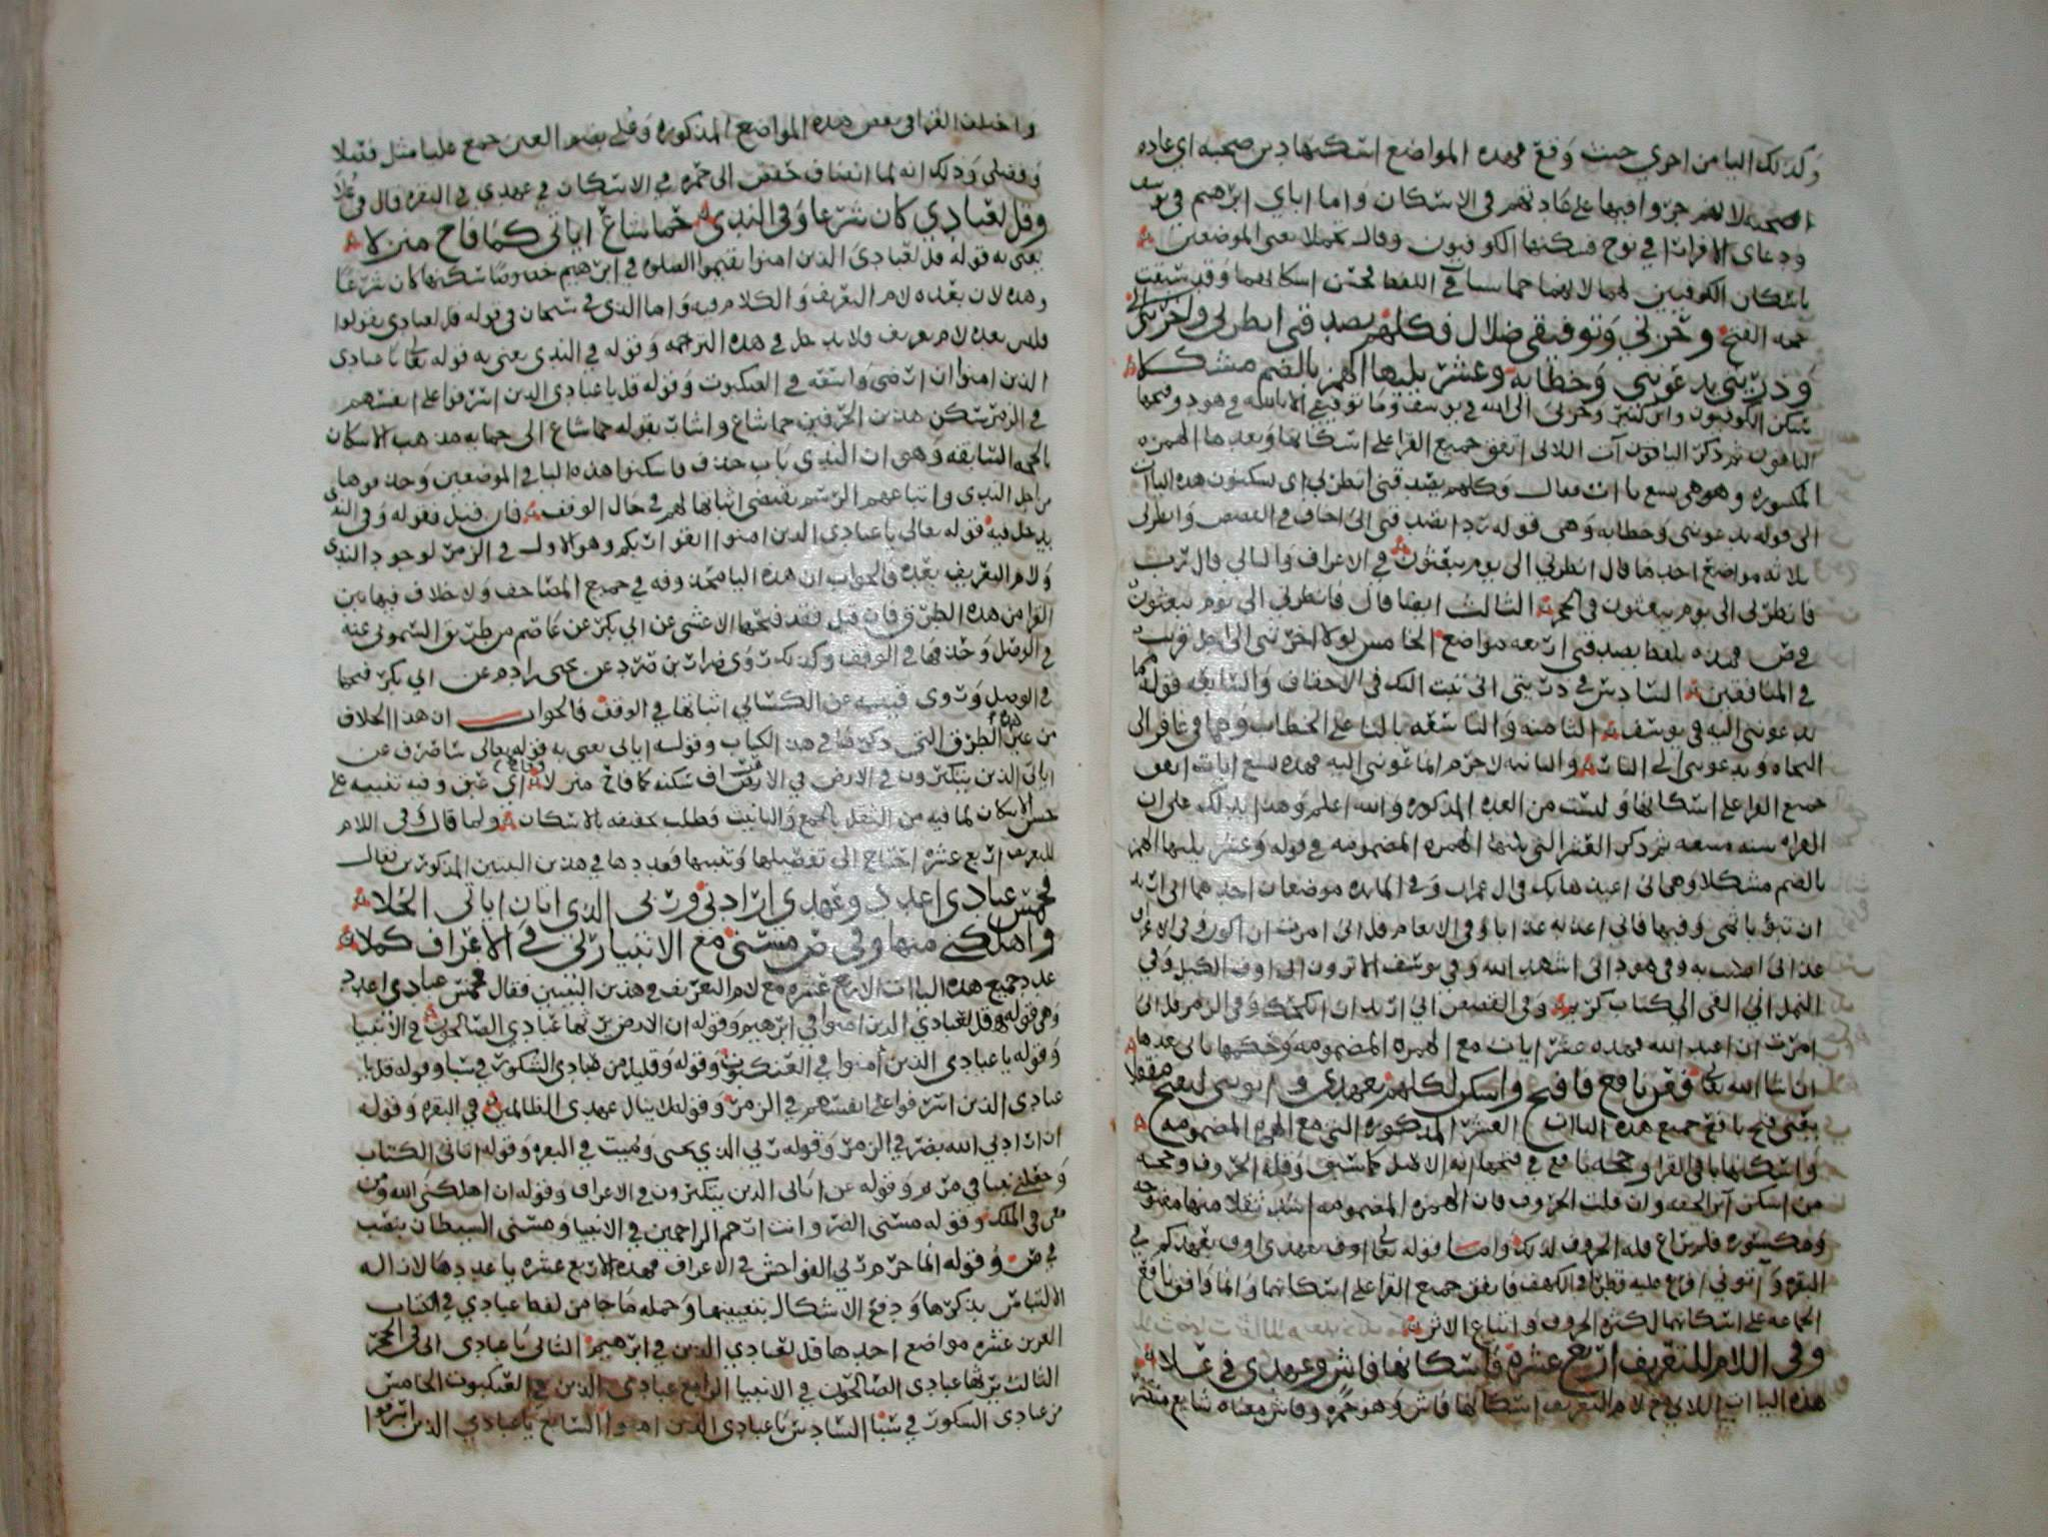 وكذلك اليا من اخوتي حيث وقع فهذه المواضع اسكنها دين صحبه اي عاده
لانهم جروا فيها على عادتهم في الاسكان واما اباي ابرهيم في يوسف
ودعاي الا فرارا في نوح فسكنها الكوفيون وقال تجملا يعني الموضعين
باسكان الكوفيين لهما لانهما في اللفظ فحسن اسكانهما وقد سبقت
حجه الفتح وحزني وتوفيقي ظلال وكلهم يصدقني انظرني واخرتني الى
وذريتي يدعونني وخطابه وعشر يليها الهمز بالضم مشكلا
سكن الكوفيون وابن كثير وحزني الى الله في يوسف وما توفيقي الا بالله في هود وفتحها
الباقون ثم ذكر الياءات اللاتي اتفق جميع القرا على اسكانها وبعدها الهمزه
المكسوره وهو هي تسع يا ات فقال وكلهم يصدقني انظرني اي يسكنون هذه الياات
الى قوله يدعونني وخطابه وهي قوله ردا يصدقني اني اخاف في القصص وانظرني
ثلاثه مواضع احدها قال انظرني الى يوم يبعثون في الاعراف والثاني قال رب
فانظرني الى يوم يبعثون في الحجر الثالث ايضا قال فانظرني الى يوم يبعثون
في ص فهذه بلفظ يصدقني اربعه مواضع الخامس لولا اخرتني الى اجل قريب
في المنافقين السادس في ذريتي اني تبت اليك في الاحقاف والسابعه قوله مما
يدعونني اليه في يوسف الثامنه والتاسعه بالتا على الخطاب وهما في غافر الى
النجاه وتدعونني الى النار والثانيه لاجرم انما تدعونني اليه فهذه تسع ايات اتفق
جميع القرا على اسكانها وليست من العده المذكوره والله اعلم وهذا يدلك على ان
القراه سنه متبعه ثم ذكر العشر التي يليها الهمزه المضمومه في قوله وعشر يليها الهمز
بالضم مشكلا وهي اني اعيذها بك في ال عمران وفي المايده موضعان احدهما اني اريد
ان تبوا باثمي وفيها فاني اعذبه عذابا وفي الانعام قل اني امرت ان اكون وفي الاعراف
عذابي اصيب به وفي هود اني اشهد الله وفي يوسف الا ترون اني اوف الكيل وفي
النمل اني القي الي كتاب كريم وفي القصص اني اريد ان انكحك وفي الزمر قل اني
امرت ان اعبد الله فهذه عشر ايات مع الهمزه المضمومه وحكمها ياتي بعدها
ان شا الله تعالى فعن نافع فافتح واسكن لكلهم بعهدي واتوني لتفتح مقفلا
يعني فتح نافع جميع هذه الياات العشر المذكوره التي مع الهمز المضمومه
واسكنها باقي القرا وحجه نافع في فتحها انه الاصل كما سبق وقله الحروف وحجه
من اسكن اراد الخفه وان قلت الحروف فان الهمزه المضمومه اشد ثقلا منها مفتوحه
ومكسوره فلم يراع قله الحروف لذلك واما قوله تعالى اوف بعهدي اوف بعهدكم في
البقره واتوني افرغ عليه قطرا في الكهف فاتفق جميع القرا على اسكانهما وانما وافق نافع
الجماعه على اسكانهما لكثره الحروف واتباع الاثر
وفي اللام للتعريف اربع عشرة فاسكانها فاش وعهدي في علا
هذه الياات اللاتي مع لام التعريف اسكانها فاش وهو حمزه وفاش معناه شايع منتشر
واختلف القرا في بعض هذه المواضع المذكوره وعلى بضم العين جمع عليا مثل فعلا
وفعلى وذلك انه لما انضاف حفص الى حمزه في الاسكان في عهدي في البقره قال في علا
وقل لعبادي كان شرعا وفي الندى حما شاع اياتي كما فاح منزلا
يعني به قوله قل لعبادي الذين امنوا يقيموا الصلوه في ابرهيم خصوصا سكنها كان شرعا
وهذه لان بعده لام التعريف والكلام فيه واما الذي في سبحان في قوله قل لعبادي يقولوا
فليس بعده لام تعريف فلا يدخل في هذه الترجمه وقوله في الندى يعني به قوله تعالى يا عبادي
الذين امنوا ان ارضي واسعه في العنكبوت وقوله قل يا عبادي الذين اسرفوا على انفسهم
في الزمر سكن هذين الحرفين حما شاع واشار بقوله حما شاع الى حمايه مذهب الاسكان
بالحجه السابقه وهو ان الندى باب حذف فاسكنوا هذه اليا في الموضعين وحذفوها
من اجل الندى واتباعهم الرسم يقتضي اثباتها لهم في حال الوقف فان قيل فقوله وفي الندى
يدخل فيه قوله تعالى يا عبادي الذين امنوا اتقوا ربكم وهو الاول في الزمر لوجود الندى
ولام التعريف بعده فالجواب ان هذه اليا محذوفه في جميع المصاحف ولا خلاف فيها بين
القرا من هذه الطرق فان قيل فقد فتحها الاعشى عن ابي بكر عن عاصم من طريق الشموني عنه
في الوصل وحذفها في الوقف وكذلك روى ضرار بن صرد عن يحيى بن ادم عن ابي بكر فتحها
في الوصل وروى قتيبه عن الكسائي اثباتها في الوقف فالجواب ان هذا الخلاف
من غير هذه الطرق التي ذكرناها في هذا الكتاب وقوله اياتي يعني به قوله تعالى ساصرف عن
اياتي الذين يتكبرون في الارض في الاعراف سكنه كما فاح منزلا اي عبق وفيه تنبيه على
حسن الاسكان لما فيه من الثقل بالجمع والتانيث وطلب تخفيفه بالاسكان ولما قال وفي اللام
للتعريف اربع عشره احتاج الى تفصيلها وتعيينها فعددها في هذين البيتين المذكورين فقال
فخمس عبادي اعدد وعهدي ارادني وربي الذي اتان اياتي الحلا
واهلكني منها وفي ص مسني مع الانبيا ربي في الاعراف كملا
عدد جميع هذه الياات الاربع عشره مع لام التعريف في هذين البيتين فقال فخمس عبادي اعدد
وهي قوله قل لعبادي الذين امنوا في ابرهيم وقوله ان الارض يرثها عبادي الصالحون في الانبيا
وقوله يا عبادي الذين امنوا في العنكبوت وقوله وقليل من عبادي الشكور في سبا وقوله قل يا
عبادي الذين اسرفوا على انفسهم في الزمر وقوله لا ينال عهدي الظالمين في البقره وقوله
ان ارادني الله بضر في الزمر وقوله ربي الذي يحيي ويميت في البقره وقوله اتاني الكتاب
وجعلني نبيا في مريم وقوله عن اياتي الذين يتكبرون في الاعراف وقوله ان اهلكني الله ومن
معي في الملك وقوله مسني الضر وانت ارحم الراحمين في الانبيا ومسني الشيطان بنصب
في ص وقوله انما حرم ربي الفواحش في الاعراف فهذه الاربع عشره يا عددها لازاله
الالتباس بذكرها ودفع الاشكال بتعيينها وجمله ما جا من لفظ عبادي في الكتاب
العزيز عشره مواضع احدها قل لعبادي الذين في ابرهيم الثاني يا عبادي اني في الحجر
الثالث يرثها عبادي الصالحون في الانبيا الرابع عبادي الذين في العنكبوت الخامس
من عبادي الشكور في سبا السادس يا عبادي الذين امنوا السابع يا عبادي الذين اسرفوا